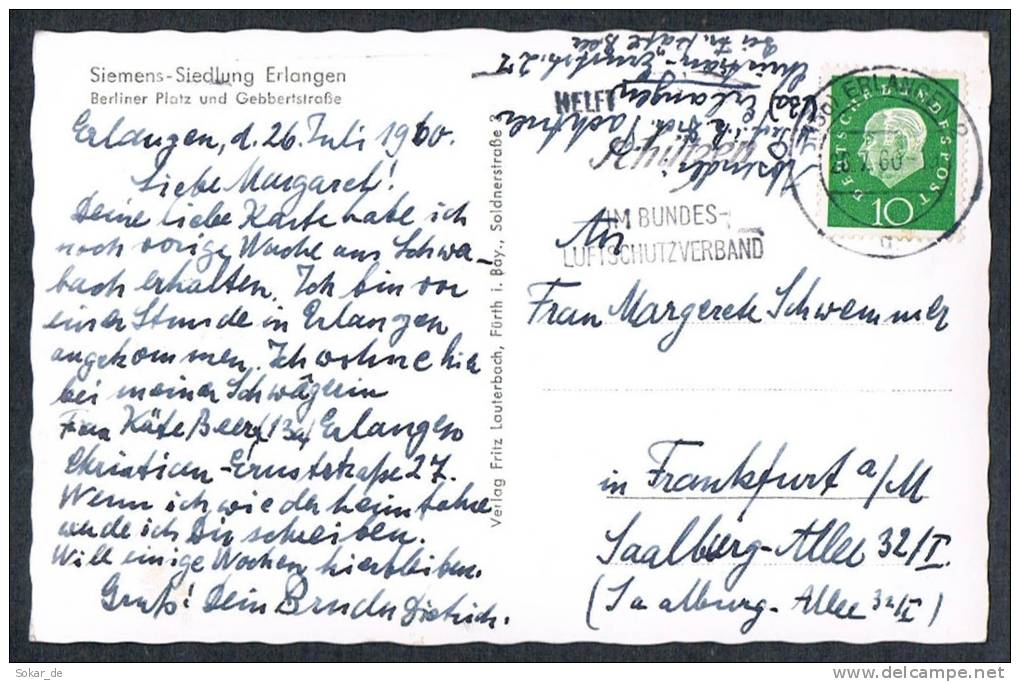 Siemens-Siedlung Erlangen
Berliner Platz und Gebbertstraße
Erlangen, d. 26. Juli 1960.
Liebe Margaret!
Deine liebe Karte habe ich
noch vorige Woche aus Schwa-
bach erhalten. Ich bin vor
einer Stunde in Erlangen
angekommen. Ich wohne hier
bei meiner Schwägerin
Frau Käte Beer, (13a) Erlangen
Christian-Ernststraße 27.
Wenn ich wieder heimfahre
werde ich Dir schreiben.
Will einige Wochen hierbleiben.
Gruß! Dein Bruder Dietrich.
Verlag Fritz Lauterbach, Fürth i. Bay., Soldnerstraße 3
Absender:
Erlangen
Christian-Ernststr. 27
bei Fr. Käte Beer
HELFT
IM BUNDES-
LUFTSCHUTZVERBAND
ERLANGEN
26.7.60
DEUTSCHE BUNDESPOST
10
An
Frau Margarete Schwemmer
in Frankfurt a/M
Saalburg-Allee 32/I.
(Saalburg-Allee 32/I)
Sokar_de
delcampe.net